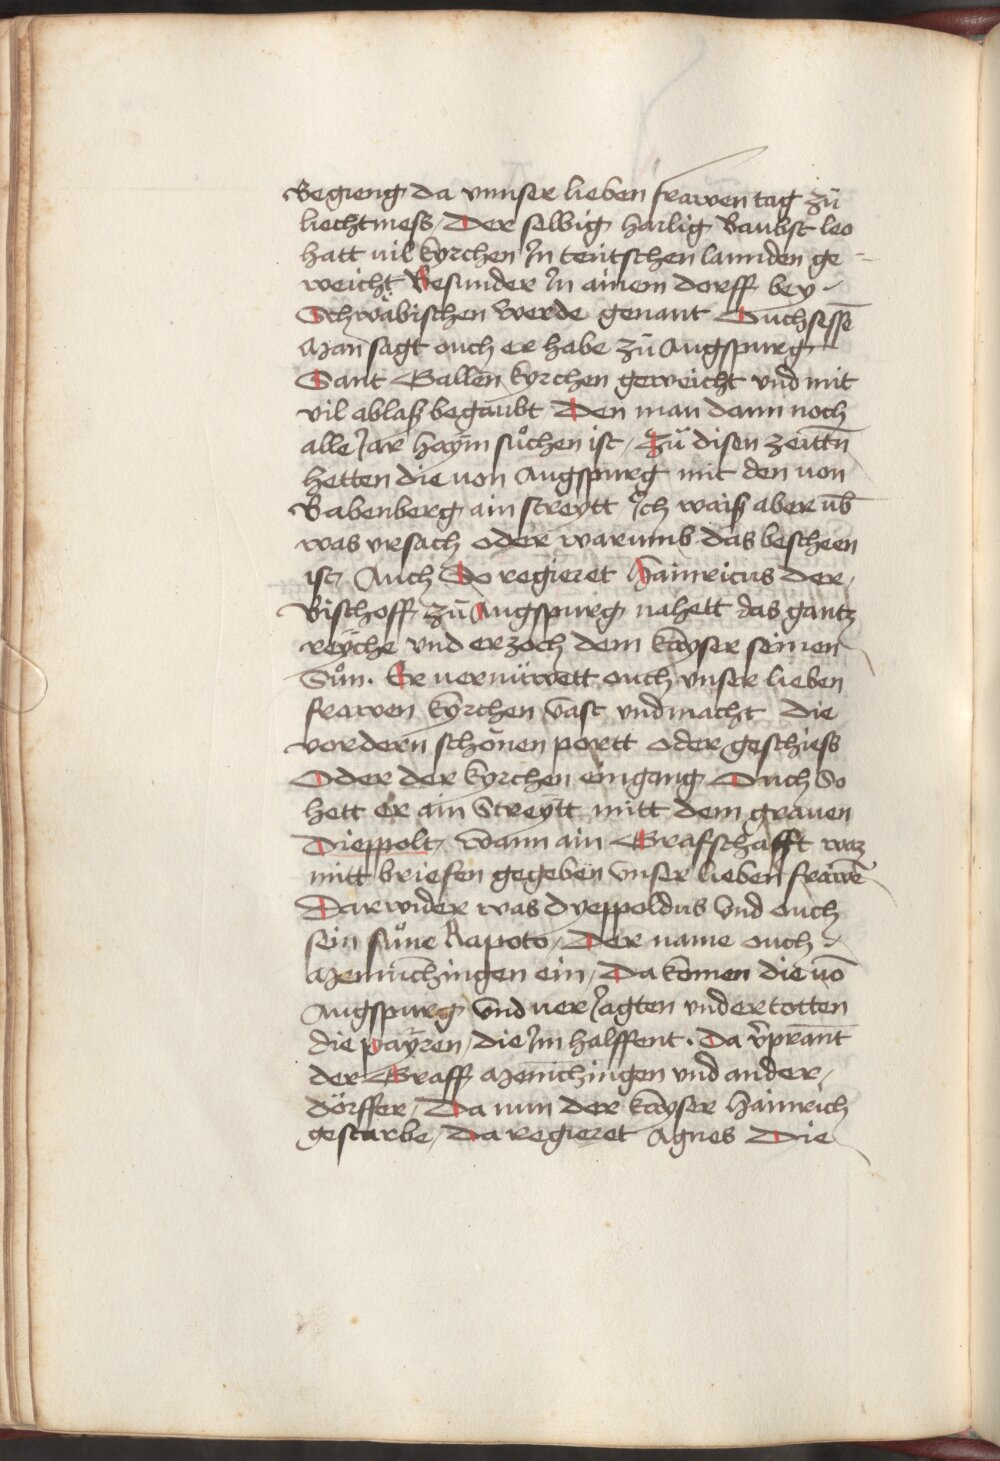 Begieng da vnnser lieben frawen tag zů
liechtmess / Der selbig hailig Baubst leo
hatt uil kyrchen Jn teütschen lannden ge=
weicht Besunder Jn ainem dorff bey -
Schwäbischen werde genant Suchsissē
Man sagt ouch er habe zů Augspurg
Sant Gallen kyrchen geweicht vnd mit
vil ablaß begaubt Den man dann noch
alle Jar haym sůchen ist / Zů disen zeittn̄
hetten die uon Augspurg mit den uon
Babenberg ain streytt Jch waiß aber ūb
was vrsach oder warumb das bescheen
ist / Auch Do regieret Hainricus der /
Bischoff zů Augspurg nahett das gantz
reyche vnd erzoch dem kayser seinen
Sůn . Er uernüwett ouch vnser lieben
frawen kyrchen vast vnd macht die
vordern schönen portt oder geschiess
Oder der kyrchen eingang Ouch So
hett er ain Streytt mitt dem grauen
Dieppolt / wann ain Grafschafft waz
mitt briefen gegeben vnser lieben frawē
Darwider was dyeppoldus vnd ouch
sein sůne Rapoto / Der name ouch -
Mennchingen ein / Da komen die uō
Augspurg vnd uer Jagten vnd ertotten
die payren / die Jm halffent . Da v̄prannt
der Graff Menichingen vnd ander /
dörffer / Da nun der kayser hainrich
gestarbe / Da regieret Agnes Die